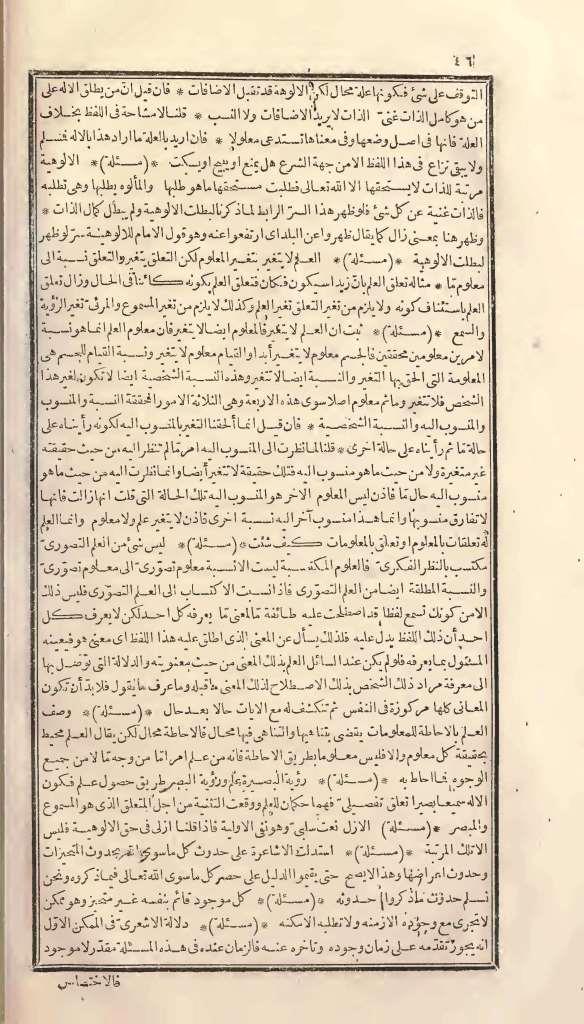 ٤٦
التوقف على شئ فكونها علة محال لكن الالوهة قد تقبل الاضافات * فان قيل ان من يطلق الاله على
من هو كامل الذات غنى الذات لا يريد الاضافات ولا النسب * قلنا لا مشاحة فى اللفظ بخلاف
العلة فانها فى اصل وضعها وفى معناها تستدعى معلولا * فان اريد بالعلة ما اراد هذا بالاله فمسلم
ولا يبقى نزاع فى هذا اللفظ الا من جهة الشرع هل يمنع او يبيح او يسكت * (مسئلة) * الالوهية
مرتبة للذات لا يستحقها الا الله تعالى فطلبت مستحقها ما هو طلبها والمألوه يطلبها وهى تطلبه
فالذات غنية عن كل شئ فلو ظهر هذا السر الرابط لما ذكرنا لبطلت الالوهية ولم يبطل كمال الذات *
وظهر هنا بمعنى زال كما يقال ظهروا عن البلد اى ارتفعوا عنه وهو قول الامام للالوهية سر لو ظهر
لبطلت الالوهية * (مسئلة) * العلم لا يتغير بتغير المعلوم لكن التعلق يتغير والتعلق نسبة الى
معلوم ما * مثاله تعلق العلم بان زيدا سيكون فكان فتعلق العلم بكونه كائنا فى الحال وزال تعلق
العلم باستئناف كونه ولا يلزم من تغير التعلق تغير العلم وكذلك لا يلزم من تغير المسموع والمرئى تغير الرؤية
والسمع * (مسئلة) * ثبت ان العلم لا يتغير فالمعلوم ايضا لا يتغير فان معلوم العلم انما هو نسبة
لامرين معلومين محققين فالجسم معلوم لا يتغير أبدا والقيام معلوم لا يتغير ونسبة القيام للجسم هى
المعلومة التى الحق بها التغير والنسبة ايضا لا تتغير وهذه النسبة الشخصية ايضا لا تكون لغير هذا
الشخص فلا تتغير وما ثم معلوم اصلا سوى هذه الاربعة وهى الثلاثة الامور المحققة النسبة والمنسوب
والمنسوب اليه والنسبة الشخصية * فان قيل انما ألحقنا التغير بالمنسوب اليه لكونه رأيناه على
حالة ما ثم رأيناه على حالة اخرى * قلنا لما نظرت الى المنسوب اليه امر ما لم تنظر اليه من حيث حقيقته
غير متغيرة ولا من حيث ما هو منسوب اليه فتلك حقيقة لا تتغير أيضا وانما نظرت اليه من حيث ما هو
منسوب اليه حال ما فاذن ليس المعلوم الاخر هو المنسوب اليه تلك الحالة التى قلت انها زالت فانها
لا تفارق منسوبها وانما هذا منسوب آخر اليه نسبة اخرى فاذن لا يتغير علم ولا معلوم وانما العلم
له تعلقات بالمعلوم او تعلق بالمعلومات كيف شئت * (مسئلة) * ليس شئ من العلم التصورى
مكتسب بالنظر الفكرى * فالعلوم المكتسبة ليست الا نسبة معلوم تصورى الى معلوم تصورى
والنسبة المطلقة ايضا من العلم التصورى فاذا نسبت الاكتساب الى العلم التصورى فليس ذلك
الا من كونك تسمع لفظا قد اصطلحت عليه طائفة ما لمعنى ما يعرفه كل احد لكن لا يعرف كل
احد أن ذلك اللفظ يدل عليه فلذلك يسأل عن المعنى الذى اطلق عليه هذا اللفظ اى معنى هو فيعينه
المسئول بما يعرفه فلو لم يكن عند السائل العلم بذلك المعنى من حيث معنويته والدلالة التى توصل بها
الى معرفة مراد ذلك الشخص بذلك الاصطلاح لذلك المعنى ما قبله وما عرف ما يقول فلا بد أن تكون
المعانى كلها مركوزة فى النفس ثم تنكشف له مع الايات حالا بعد حال * (مسئلة) * وصف
العلم بالاحاطة للمعلومات يقضى بتناهيها والتناهى فيها محال فالاحاطة محال لكن يقال العلم محيط
بحقيقة كل معلوم والا فليس معلوما بطريق الاحاطة فانه من علم امرا ما من وجه ما لا من جميع
الوجوه فما احاط به * (مسئلة) * رؤية البصيرة علم ورؤية البصر طريق حصول علم فكون
الاله سميعا بصيرا تعلق تفصيلى فهما حكمان للعلم ووقعت التثنية من اجل المتعلق الذى هو المسموع
والمبصر * (مسئلة) الازل نعت سلبى وهو نفى الاولية فاذا قلنا ازلى فى حق الالوهية فليس
الا تلك المرتبة * (مسئلة) * استدلت الاشاعرة على حدوث كل ما سوى الله بحدوث المتحيزات
وحدوث اعراضها وهذا لا يصح حتى يقيموا الدليل على حصر كل ما سوى الله تعالى فيما ذكروه ونحن
نسلم حدوث ما ذكروا حدوثه * (مسئلة) * كل موجود قائم بنفسه غير متحيز وهو ممكن
لا تجرى مع وجوده الازمنه ولا تطلبه الامكنه * (مسئلة) * دلالة الاشعرى فى الممكن الاول
انه يجوز تقدمه على زمان وجوده وتاخره عنه فالزمان عنده فى هذه المسئلة مقدر لا موجود
فالاختصاص